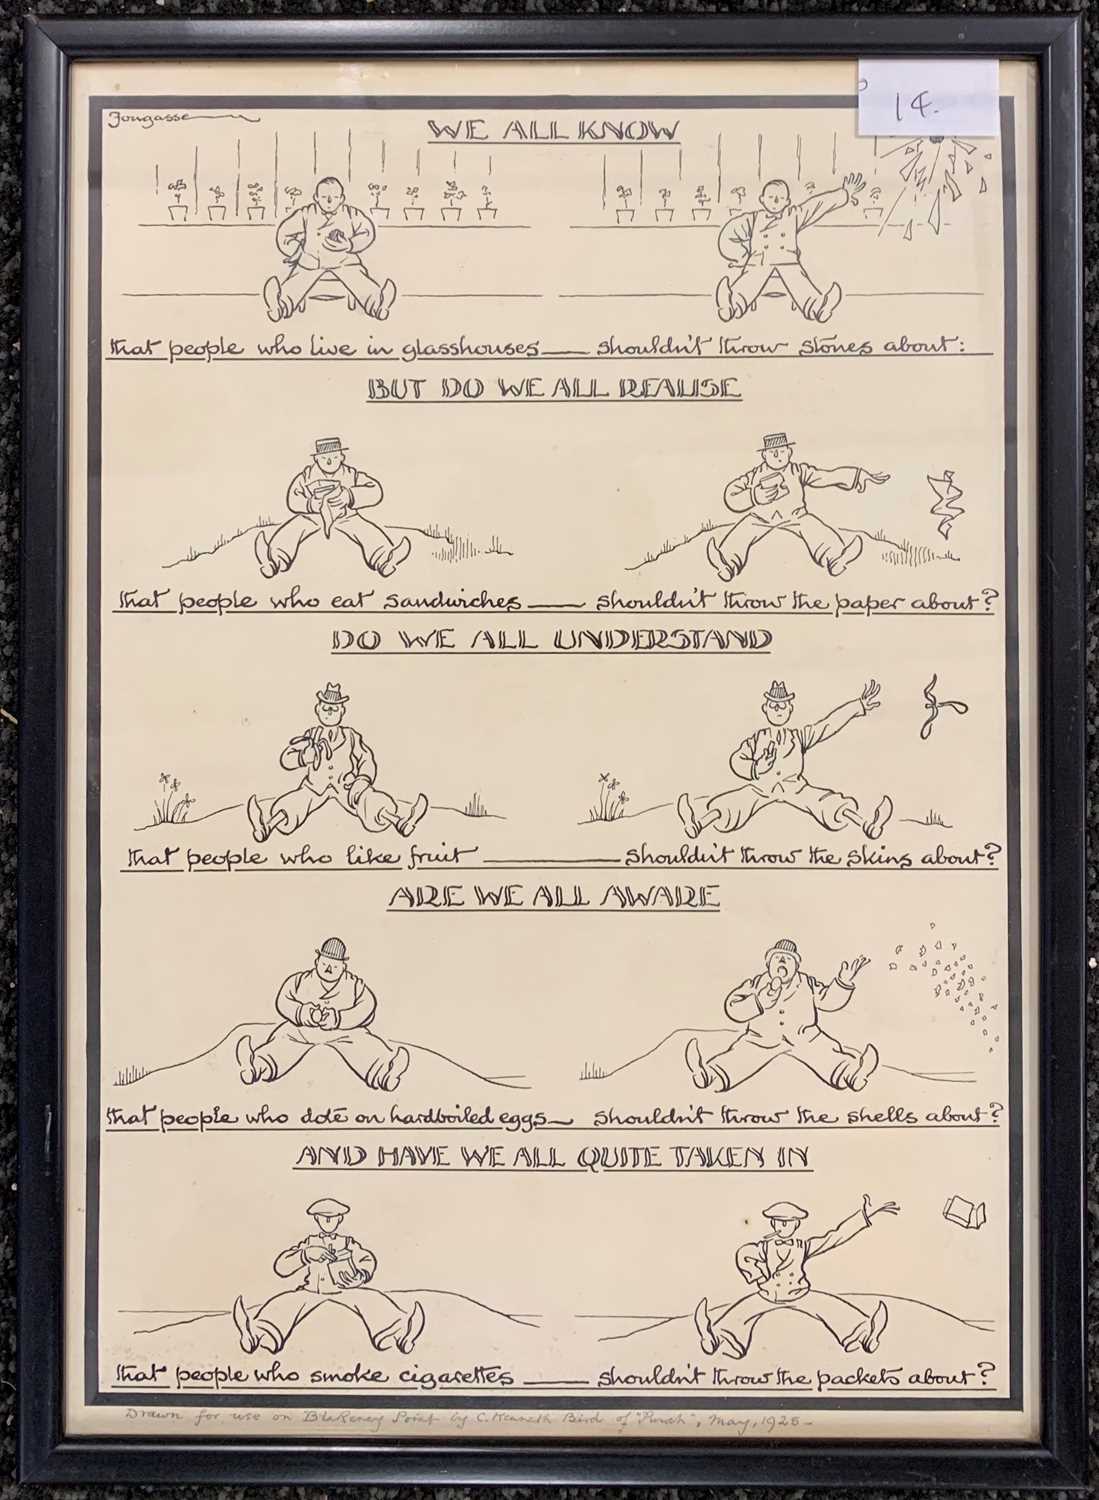 14.
Fougasse
WE ALL KNOW
that people who live in glasshouses — shouldn't throw stones about:
BUT DO WE ALL REALISE
that people who eat sandwiches — shouldn't throw the paper about?
DO WE ALL UNDERSTAND
that people who like fruit — shouldn't throw the skins about?
ARE WE ALL AWARE
that people who dote on hardboiled eggs — shouldn't throw the shells about?
AND HAVE WE ALL QUITE TAKEN IN
that people who smoke cigarettes — shouldn't throw the packets about?
Drawn for use on Blakeney Point by C. Kenneth Bird of "Punch", May, 1925 -